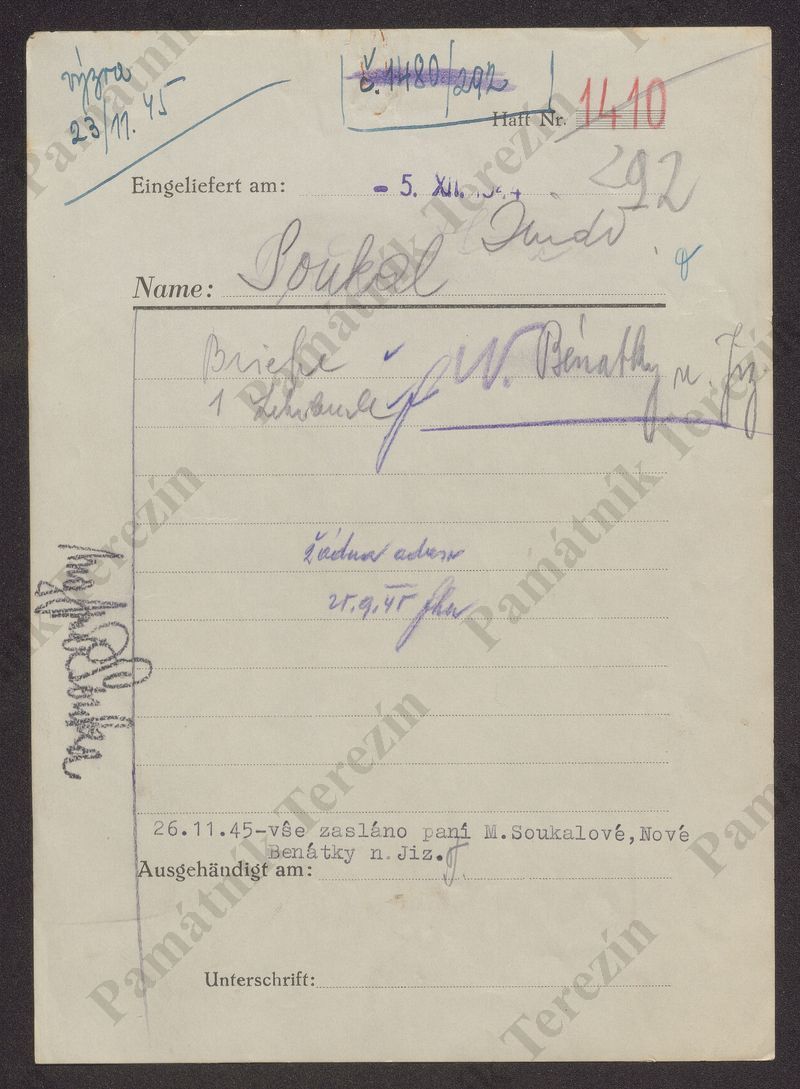 výzva
23/11. 45
č. 1480/292
Haft Nr. 1410
Eingeliefert am: - 5. XII. 1944
292
Name: Soukal
Briefe
1
N. Benátky n. Jiz
žádná adresa
25.9.45
26.11.45-vše zasláno paní M.Soukalové,Nové
Benátky n.Jiz.
Ausgehändigt am:
Unterschrift:
Památník Terezín